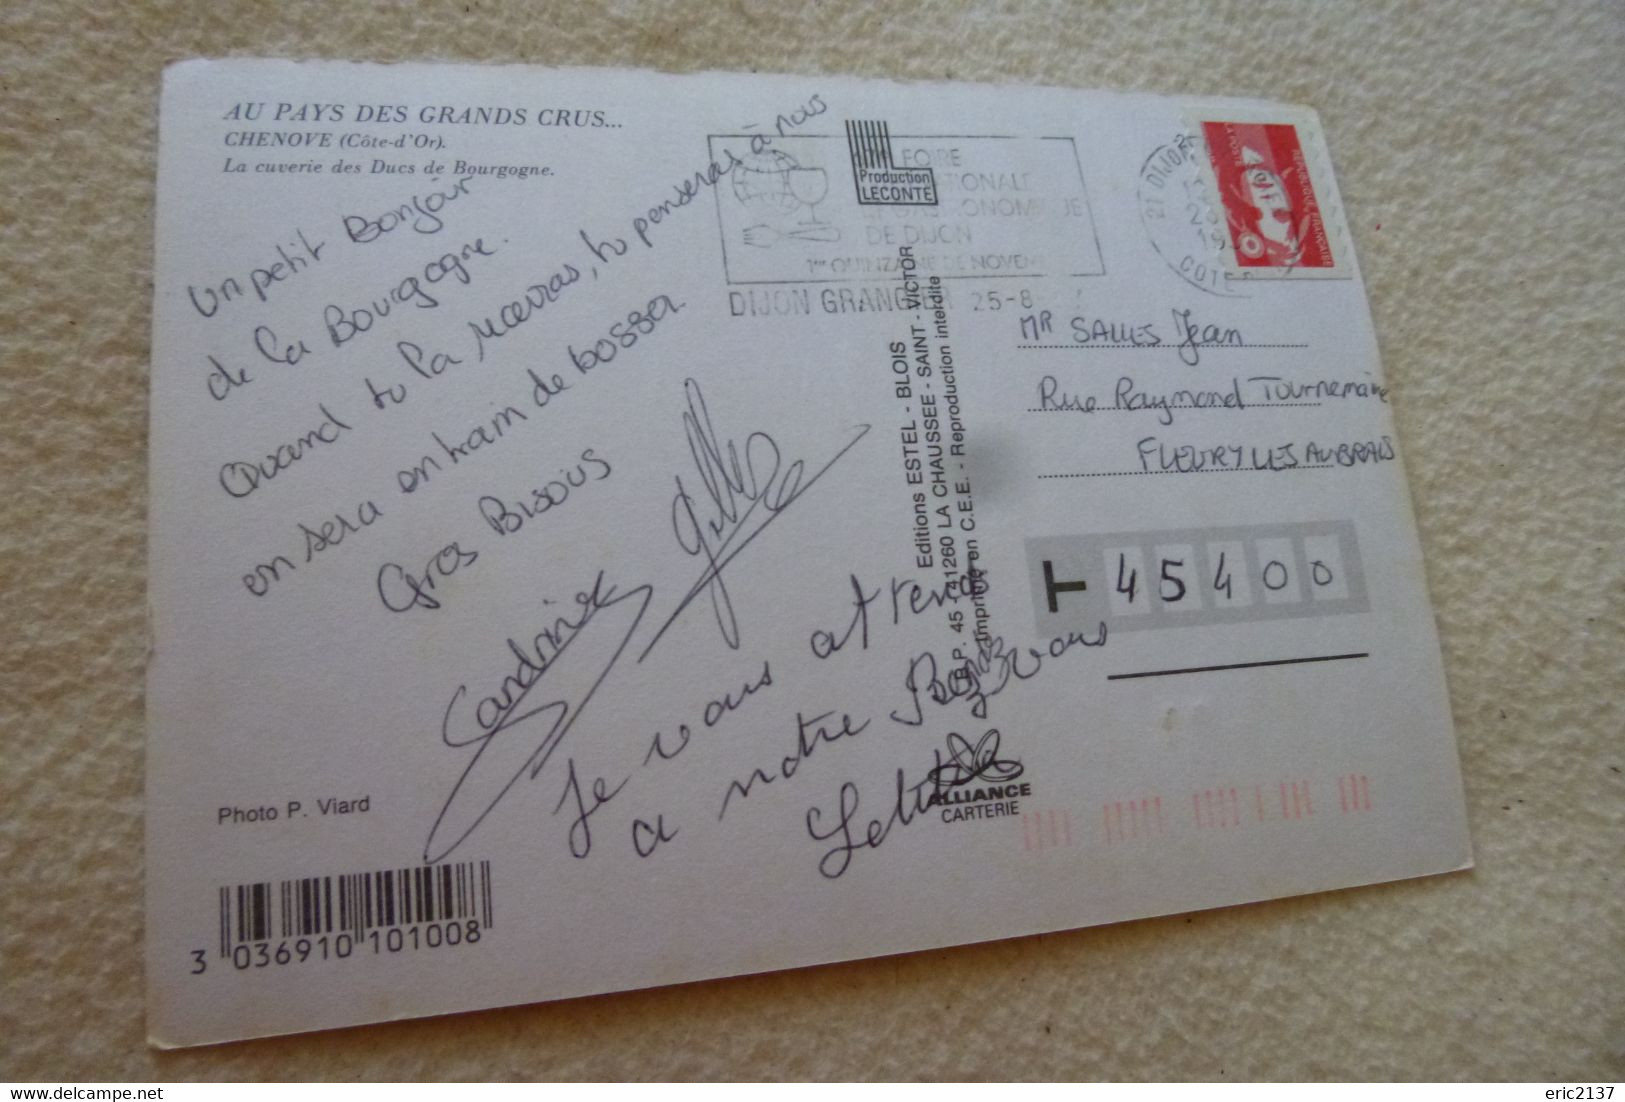 AU PAYS DES GRANDS CRUS...
CHENOVE (Côte-d'Or).
La cuverie des Ducs de Bourgogne.
Un petit Bonjour
de la Bourgogne.
Quand tu la recevras, tu penseras à nous
en sera entrain de bosser
Gros Bisous
Sandrine
Je vous attend
a notre vous
Laetitia
Photo P. Viard
3 036910 101008
Production
LECONTE
FOIRE
GASTRONOMIQUE
DE DIJON
1ère QUINZAINE DE NOVEM
DIJON GRANGIER 25-8
21 DIJON
COTE D
LA POSTE
REPUBLIQUE FRANÇAISE
Editions ESTEL - BLOIS
B.P. 45 - 41260 LA CHAUSSEE - SAINT - VICTOR
Imprimé en C.E.E. - Reproduction interdite
ALLIANCE
CARTERIE
Mr SALLES Jean
Rue Raymond Tournemaine
FLEURY LES AUBRAIS
T 45400
eric2137